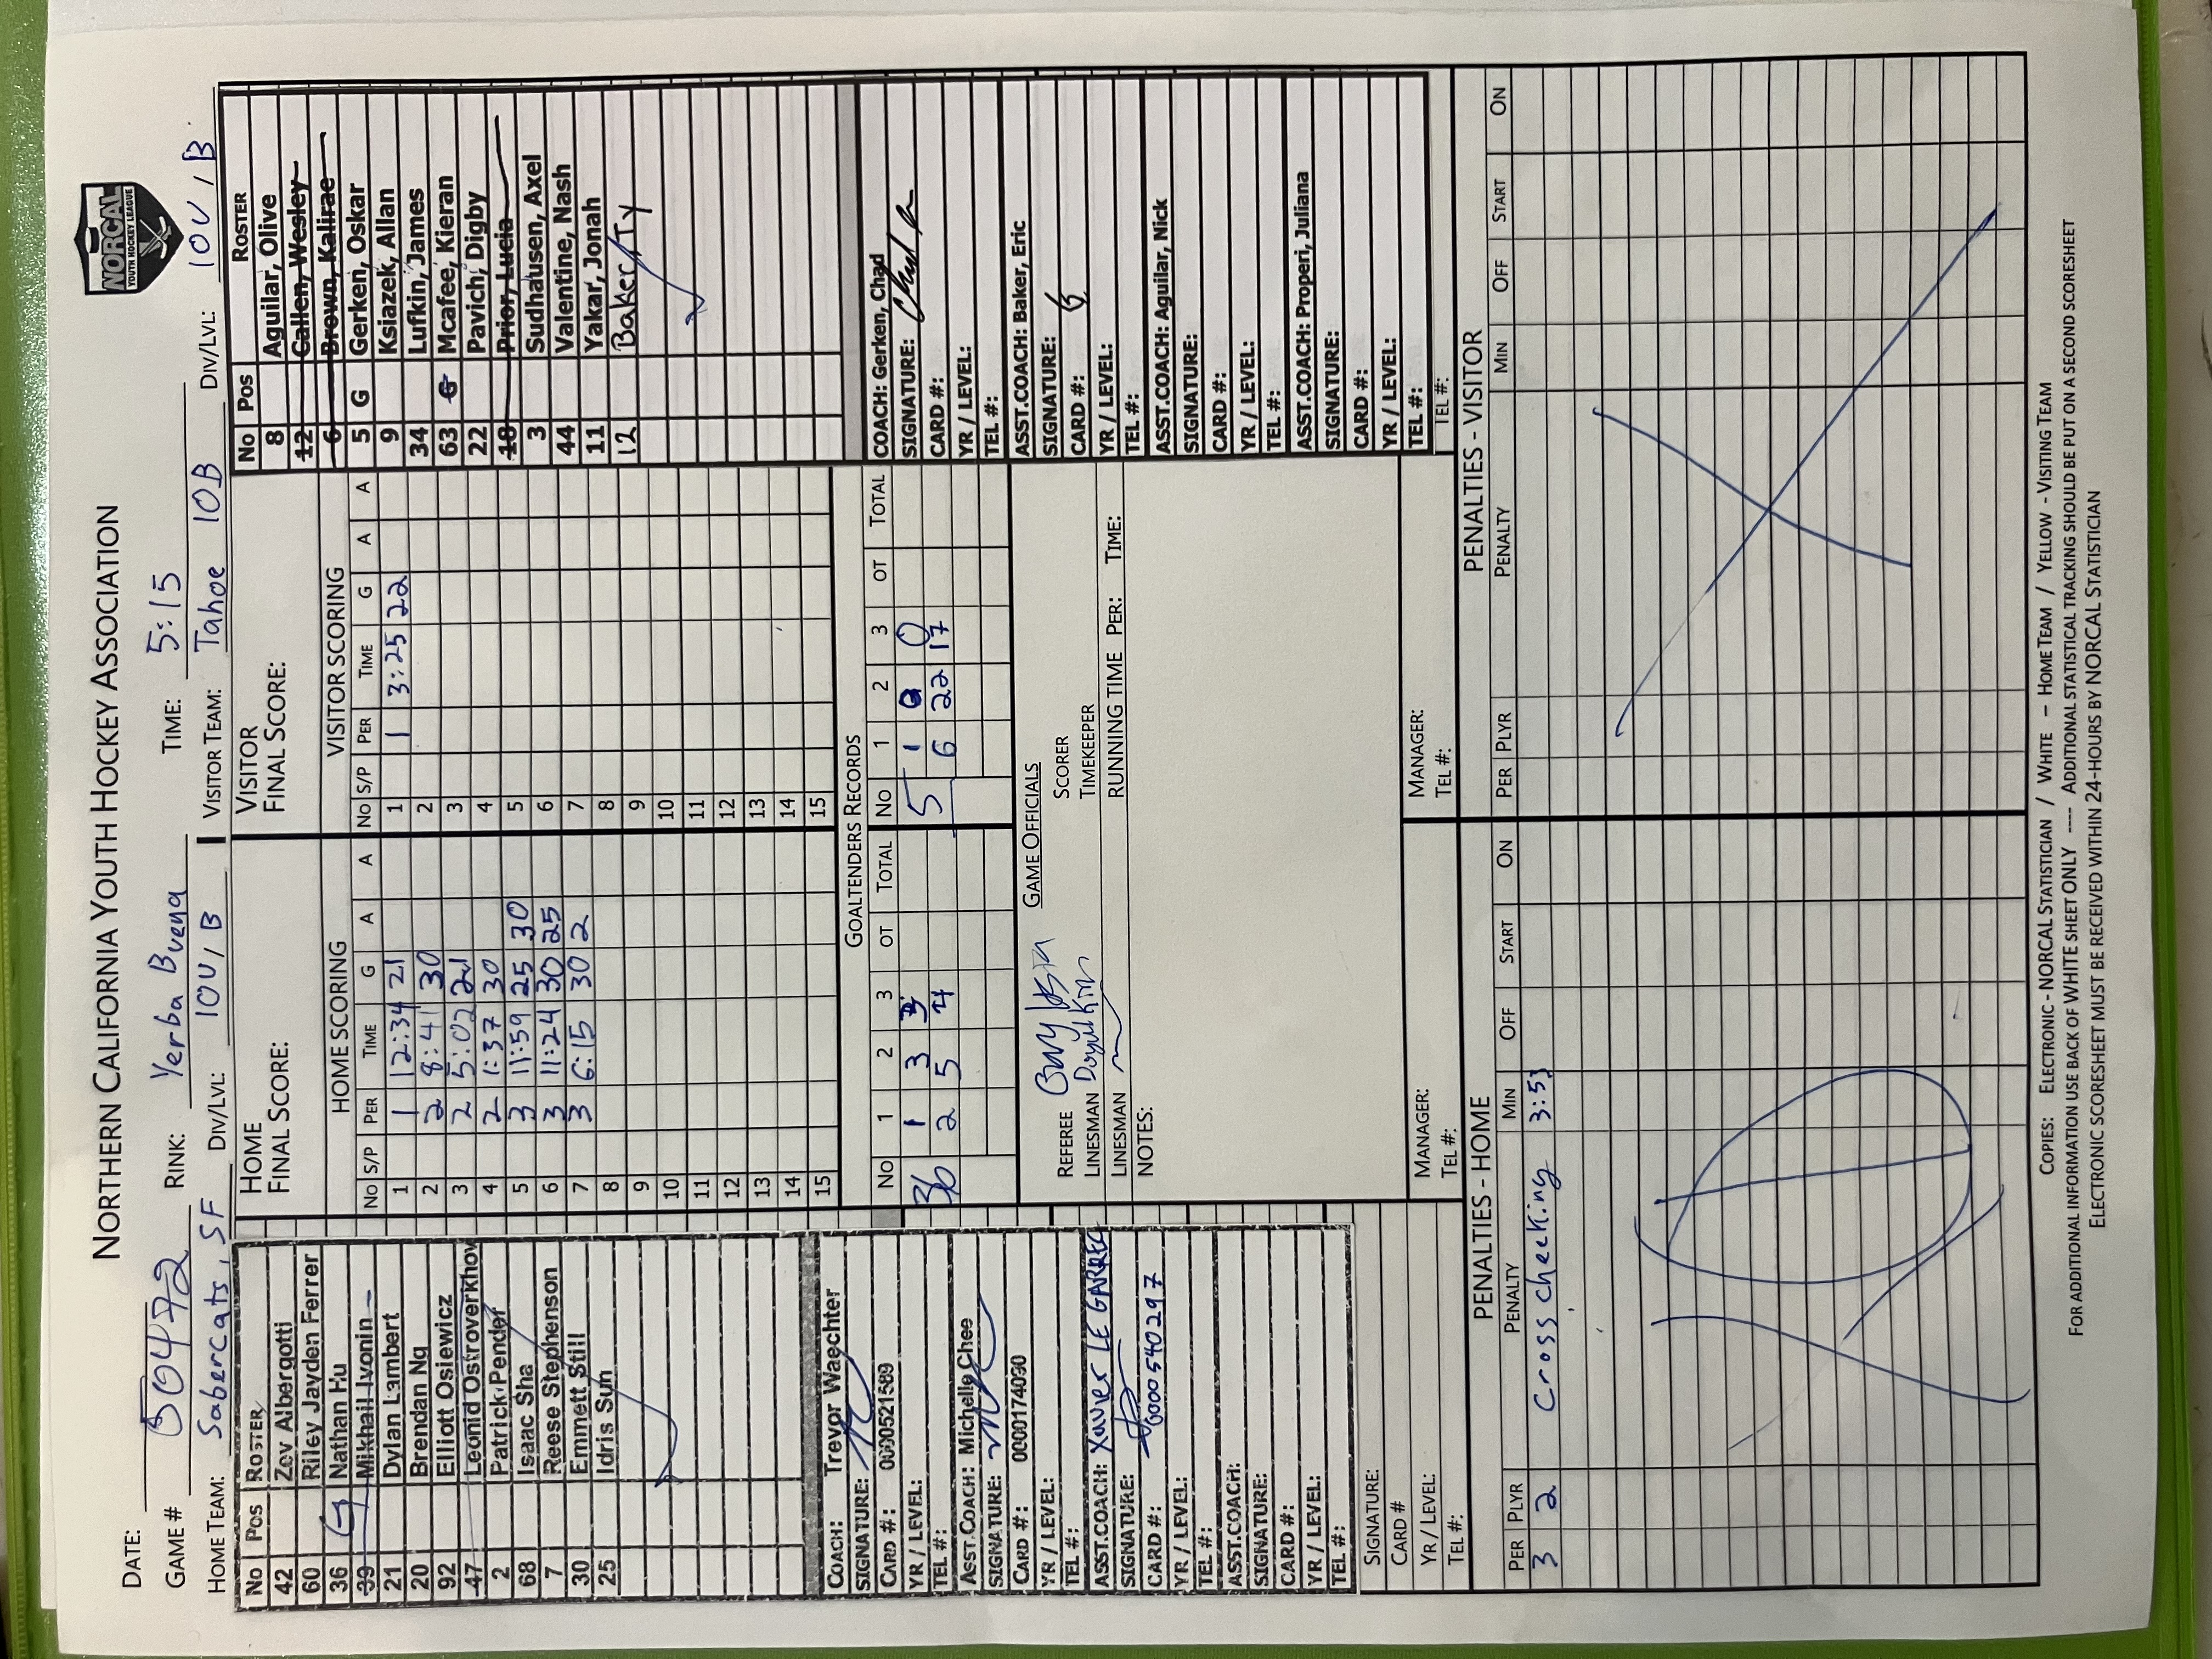 NORTHERN CALIFORNIA YOUTH HOCKEY ASSOCIATION
NORCAL
YOUTH HOCKEY LEAGUE
DATE:
GAME # 50472 RINK: Yerba Buena TIME: 5:15
HOME TEAM: Sabercats, SF DIV/LVL: 10U / B VISITOR TEAM: Tahoe 10B DIV/LVL: 10U / B
No Pos ROSTER
42 Zev Albergotti
60 Riley Jayden Ferrer
36 G Nathan Hu
39 Mikhail Ivonin
21 Dylan Lambert
20 Brendan Ng
92 Elliott Osiewicz
47 Leonid Ostroverkhov
2 Patrick Pender
68 Isaac Sha
7 Reese Stephenson
30 Emmett Still
25 Idris Sun
COACH: Trevor Waechter
SIGNATURE:
CARD #: 0000521589
YR / LEVEL:
TEL #:
ASST.COACH: Michelle Chee
SIGNATURE:
CARD #: 0000174030
YR / LEVEL:
TEL #:
ASST.COACH: Xavier LE GARREC
SIGNATURE:
CARD #: 0000540297
YR / LEVEL:
TEL #:
ASST.COACH:
SIGNATURE:
CARD #:
YR / LEVEL:
TEL #:
SIGNATURE:
CARD #
YR / LEVEL:
TEL #:
HOME
FINAL SCORE:
HOME SCORING
No S/P PER TIME G A A
1 1 12:34 21
2 2 8:41 30
3 2 5:02 21
4 2 1:37 30
5 3 11:59 25 30
6 3 11:24 30 25
7 3 6:15 30 2
8
9
10
11
12
13
14
15
VISITOR
FINAL SCORE:
VISITOR SCORING
No S/P PER TIME G A A
1 1 3:25 22
2
3
4
5
6
7
8
9
10
11
12
13
14
15
GOALTENDERS RECORDS
No 1 2 3 OT TOTAL No 1 2 3 OT TOTAL
36 1 3 3 5 1 0 0
2 5 4 5 6 22 17
GAME OFFICIALS
REFEREE SCORER
LINESMAN TIMEKEEPER
LINESMAN RUNNING TIME PER: TIME:
NOTES:
MANAGER: MANAGER:
TEL #: TEL #:
No Pos ROSTER
8 Aguilar, Olive
12 Callen, Wesley
6 Brown, Kalirae
5 G Gerken, Oskar
9 Ksiazek, Allan
34 Lufkin, James
63 G Mcafee, Kieran
22 Pavich, Digby
18 Prior, Lucia
3 Sudhausen, Axel
44 Valentine, Nash
11 Yakar, Jonah
12 Baker, Ty
COACH: Gerken, Chad
SIGNATURE:
CARD #:
YR / LEVEL:
TEL #:
ASST.COACH: Baker, Eric
SIGNATURE:
CARD #:
YR / LEVEL:
TEL #:
ASST.COACH: Aguilar, Nick
SIGNATURE:
CARD #:
YR / LEVEL:
TEL #:
ASST.COACH: Properi, Juliana
SIGNATURE:
CARD #:
YR / LEVEL:
TEL #:
TEL #:
PENALTIES - HOME
PER PLYR PENALTY MIN OFF START ON
3 2 Cross cheeking 3:53
PENALTIES - VISITOR
PER PLYR PENALTY MIN OFF START ON
COPIES: ELECTRONIC - NORCAL STATISTICIAN / WHITE – HOME TEAM / YELLOW - VISITING TEAM
FOR ADDITIONAL INFORMATION USE BACK OF WHITE SHEET ONLY ---- ADDITIONAL STATISTICAL TRACKING SHOULD BE PUT ON A SECOND SCORESHEET
ELECTRONIC SCORESHEET MUST BE RECEIVED WITHIN 24-HOURS BY NORCAL STATISTICIAN